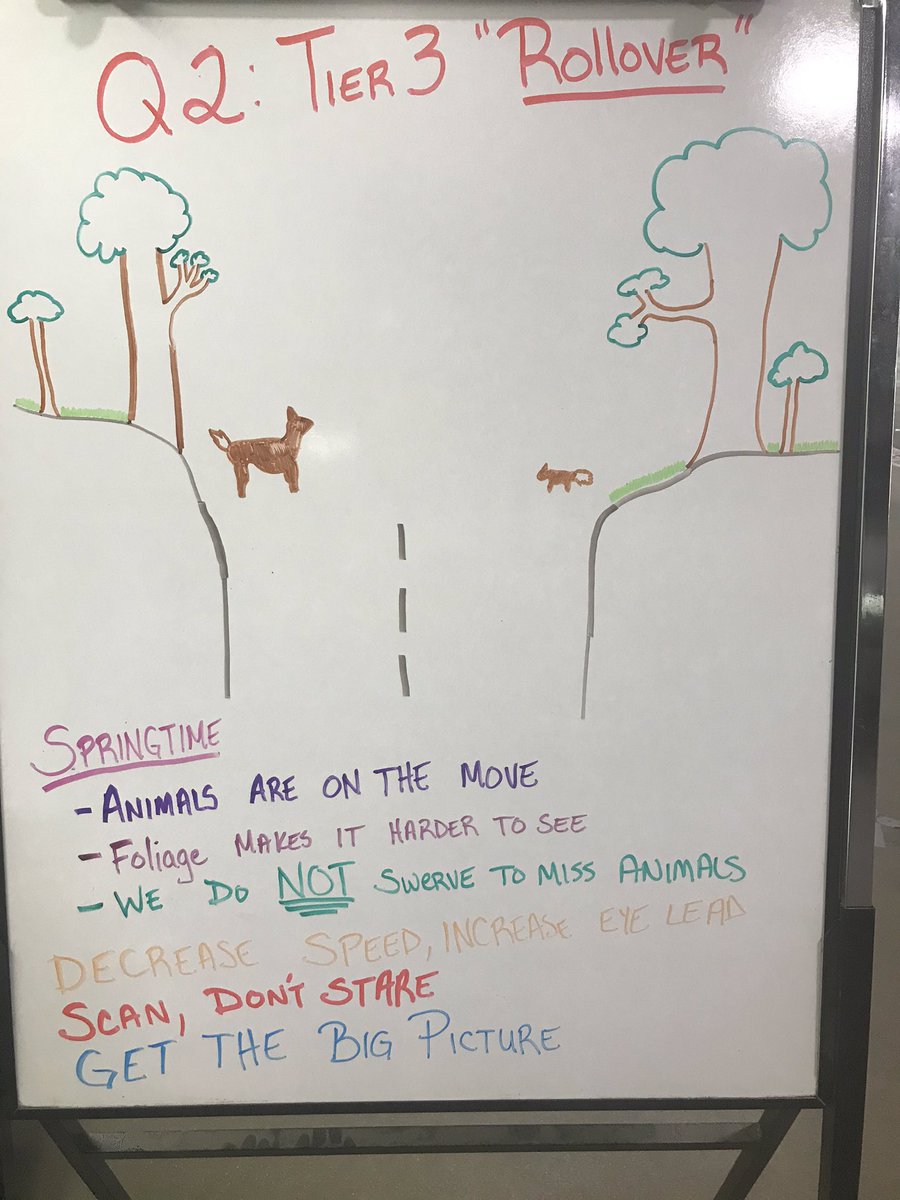 Q2: TIER 3 "ROLLOVER"
SPRINGTIME
- ANIMALS ARE ON THE MOVE
- Foliage MAKES IT HARDER TO SEE
- WE DO NOT SWERVE TO MISS ANIMALS
DECREASE SPEED, INCREASE EYE LEAD
SCAN, DON'T STARE
GET THE BIG PICTURE